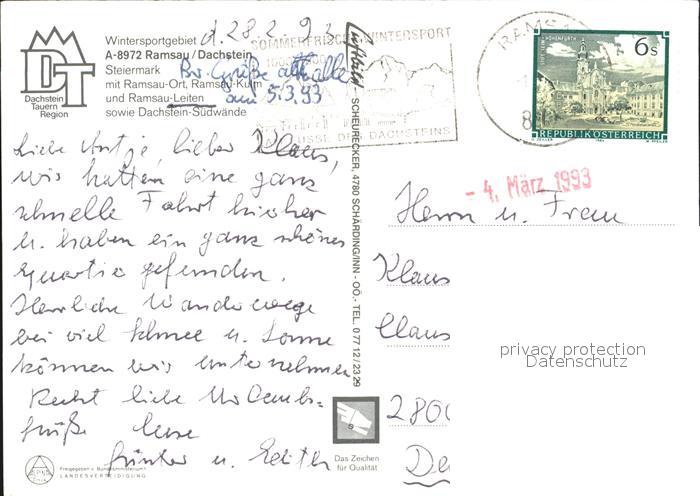 d. 28.2.93
Wintersportgebiet
A-8972 Ramsau/Dachstein
Steiermark
mit Ramsau-Ort, Ramsau-Kulm
und Ramsau-Leiten
sowie Dachstein-Südwände
DT
Dachstein
Tauern
Region
Grüße an alle
am 5.3.93
SOMMERFRISCHE WINTERSPORT
FUSSE DES DACHSTEINS
RAMS
6s
REPUBLIK ÖSTERREICH
Luftbild - SCHEURECKER, 4780 SCHÄRDING/INN - OÖ. - TEL. 0 77 12 / 23 29
- 4. März 1993
Liebe Antje, lieber Klaus,
wir hatten eine ganz
schnelle Fahrt hierher
u. haben ein ganz schönes
Quartier gefunden.
Herrliche Wanderwege
bei viel Schnee u. Sonne
können wir unternehmen
Recht liebe Urlaubs=
grüße
Günter u. Edith
Herrn u. Frau
Klaus
Claus
280
De
privacy protection
Datenschutz
Das Zeichen
für Qualität
Freigegeben v. Bundesministerium f.
LANDESVERTEIDIGUNG